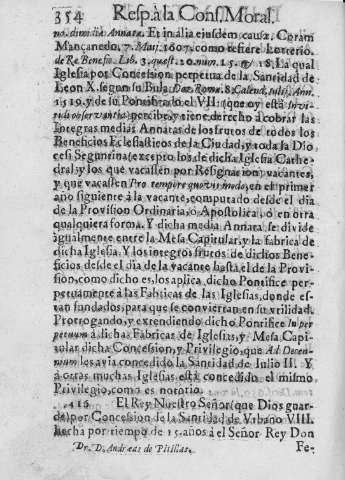 354 Resp. à la Cons. Moral.
no. dimidiæ Annatæ. Et in alia ejusdem causæ, Coram
Mançanedo, 7. Maij 1607. como refiere Loterio.
de Re Benefic. Lib. 3. quæst. 10. num. 15. & 18. La qual
Iglesia por Concession perpetua de la Santidad de
Leon X. segun su Bula: Dat. Romæ 8. Calend. Iulij, Ann.
1519. y de su Pontificado el VII: (que oy està In vi-
ridi observantia) percibe, y tiene derecho à cobrar las
Integras medias Annatas de los frutos de todos los
Beneficios Eclesiasticos de la Ciudad, y toda la Dio
cesi Seguntina (excepto los de dicha Iglesia Cathe-
dral, y los que vacassen por Resignacion) vacantes,
y que vacassen Pro tempore quovis modo, en el primer
año siguiente à la vacante, computado desde el dia
de la Provision Ordinaria, ò Apostolica, ò en otra
qualquiera forma. Y dicha media Annata se divide
igualmente entre la Mesa Capitular, y la fabrica de
dicha Iglesia. Y los integros frutos de dichos Bene-
ficios desde el dia de la vacante hasta el de la Provi-
sion, como dicho es, los aplica dicho Pontifice per-
petuamente à las Fabricas de las Iglesias, donde es-
tan fundados, para que se conviertan en su vtilidad.
Prorrogando, y extendiendo dicho Pontifice In per
petuum à dichas Fabricas de Iglesias, y Mesa Capi-
tular dicha Concession, y Privilegio, que Ad Decen-
nium les avia concedido la Santidad de Julio II. Y
à otras muchas Iglesias està concedido el mismo
Privilegio, como es notorio.
416 El Rey Nuestro Señor (que Dios guar-
de) por Concession de la Santidad de Vrbano VIII.
hecha por tiempo de 15. años à el Señor Rey Don
Dr. D. Andreas de Pitillas. Fe-